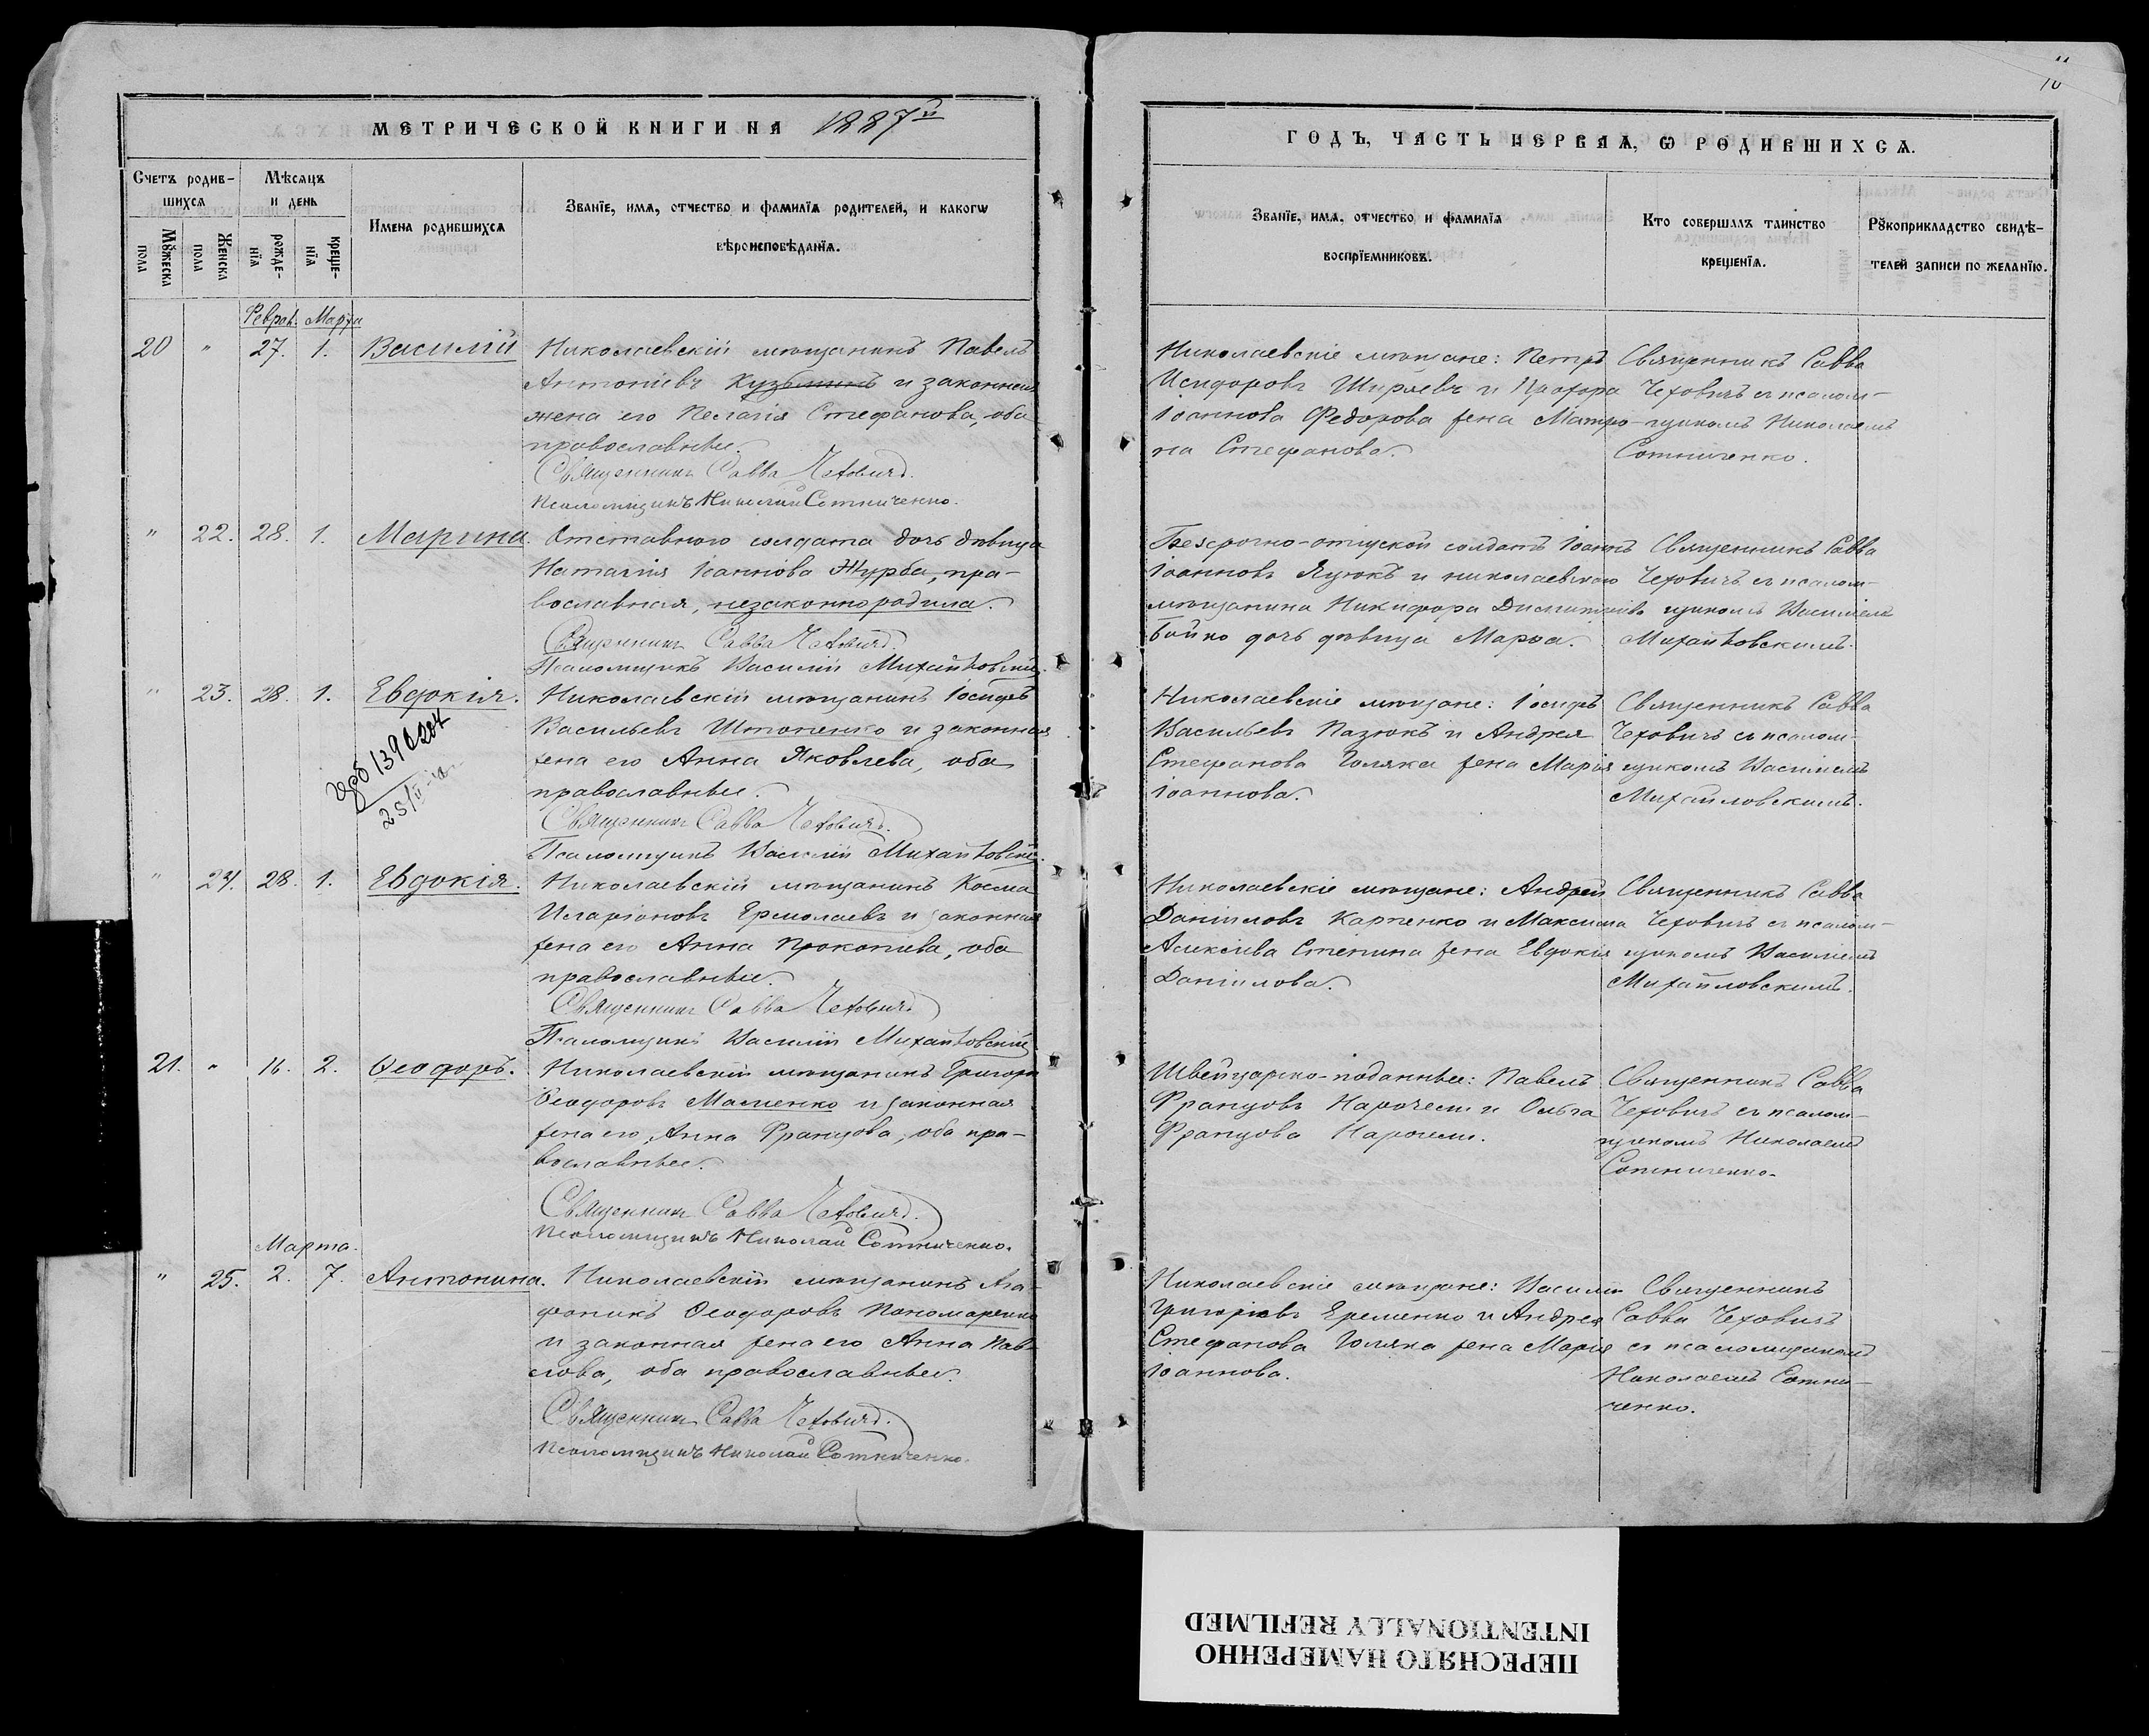 МЕТРИЧЕСКОЙ КНИГИ НА 1887й
Счетъ родив-
шихся
Мѣсяцъ
и день
Имена родившихся
Званїе, имя, отчество и фамилїя родителей, и какогѡ
вѣроисповѣданїя.
Мꙋжеска
пола
Женска
пола
рожде-
нїя
креще-
нїя
Феврал. Марта
20 " 27. 1. Василій Николаевскій мѣщанинъ Павелъ
Антоніевъ Кузьминъ и законная
жена его Пелагія Стефанова, оба
православные.
Священникъ Савва Чеховичъ.
Псаломщикъ Николай Сотниченко.
" 22. 28. 1. Марина. Отставного солдата дочь дѣвица
Наталія Іоаннова Журба, пра-
вославная, незаконнородила.
Священникъ Савва Чеховичъ.
Псаломщикъ Василій Михайловскій.
" 23. 28. 1. Евдокія. Николаевскій мѣщанинъ Іосифъ
Васильевъ Штоненко и законная
жена его Анна Яковлева, оба
православные.
Священникъ Савва Чеховичъ.
Псаломщикъ Василій Михайловскій.
" 24. 28. 1. Евдокія. Николаевскій мѣщанинъ Косма
Иларіоновъ Ермолаевъ и законная
жена его Анна Прокопіева, оба
православные.
Священникъ Савва Чеховичъ
Псаломщикъ Василій Михайловскій
21. " 16. 2. Ѳеодоръ. Николаевскій мѣщанинъ Григорій
Ѳеодоровъ Масленко и законная
жена его, Анна Францова, оба пра-
вославные.
Священникъ Савва Чеховичъ.
Псаломщикъ Николай Сотниченко.
Марта.
" 25. 2. 7. Антонина. Николаевскій мѣщанинъ Ага-
фоникъ Ѳеодоровъ Пономаренко
и законная жена его Анна Пав-
лова, оба православные.
Священникъ Савва Чеховичъ.
Псаломщикъ Николай Сотниченко.
ГОДЪ, ЧАСТЬ ПЕРВАЯ, Ѡ РОДИВШИХСЯ.
Званїе, имя, отчество и фамилїя
воспрїемниковъ.
Кто совершалъ таинство
крещенїя.
Рꙋкоприкладство свидѣ-
телей записи по желанїю.
Николаевскіе мѣщане: Петръ
Исидоровъ Ширяевъ и Прохора
Іоаннова Федорова жена Матро-
на Стефанова.
Священникъ Савва
Чеховичъ съ псалом-
щикомъ Николаемъ
Сотниченко.
Безсрочно-отпуской солдатъ Іоаннъ
Іоанновъ Яцюкъ и николаевскаго
мѣщанина Никифора Димитріева
Бойко дочь дѣвица Марѳа.
Священникъ Савва
Чеховичъ съ псалом-
щикомъ Василіемъ
Михайловскимъ.
Николаевскіе мѣщане: Іосифъ
Васильевъ Пазюкъ и Андрея
Стефанова Голяка жена Марія
Іоаннова.
Священникъ Савва
Чеховичъ съ псалом-
щикомъ Василіемъ
Михайловскимъ.
Николаевскіе мѣщане: Андрей
Даніиловъ Карпенко и Максима
Алексіева Степина жена Евдокія
Даніилова.
Священникъ Савва
Чеховичъ съ псалом-
щикомъ Василіемъ
Михайловскимъ.
Швейцарско-поданные: Павелъ
Францовъ и Ольга
Францова
Священникъ Савва
Чеховичъ съ псалом-
щикомъ Николаемъ
Сотниченко.
Николаевскіе мѣщане: Василій
Григоріевъ Еременко и Андрея
Стефанова Голяка жена Марія
Іоаннова.
Священникъ
Савва Чеховичъ
съ псаломщикомъ
Николаемъ Сотни-
ченко.
ПЕРЕСНЯТО НАМЕРЕННО
INTENTIONALLY REFILMED